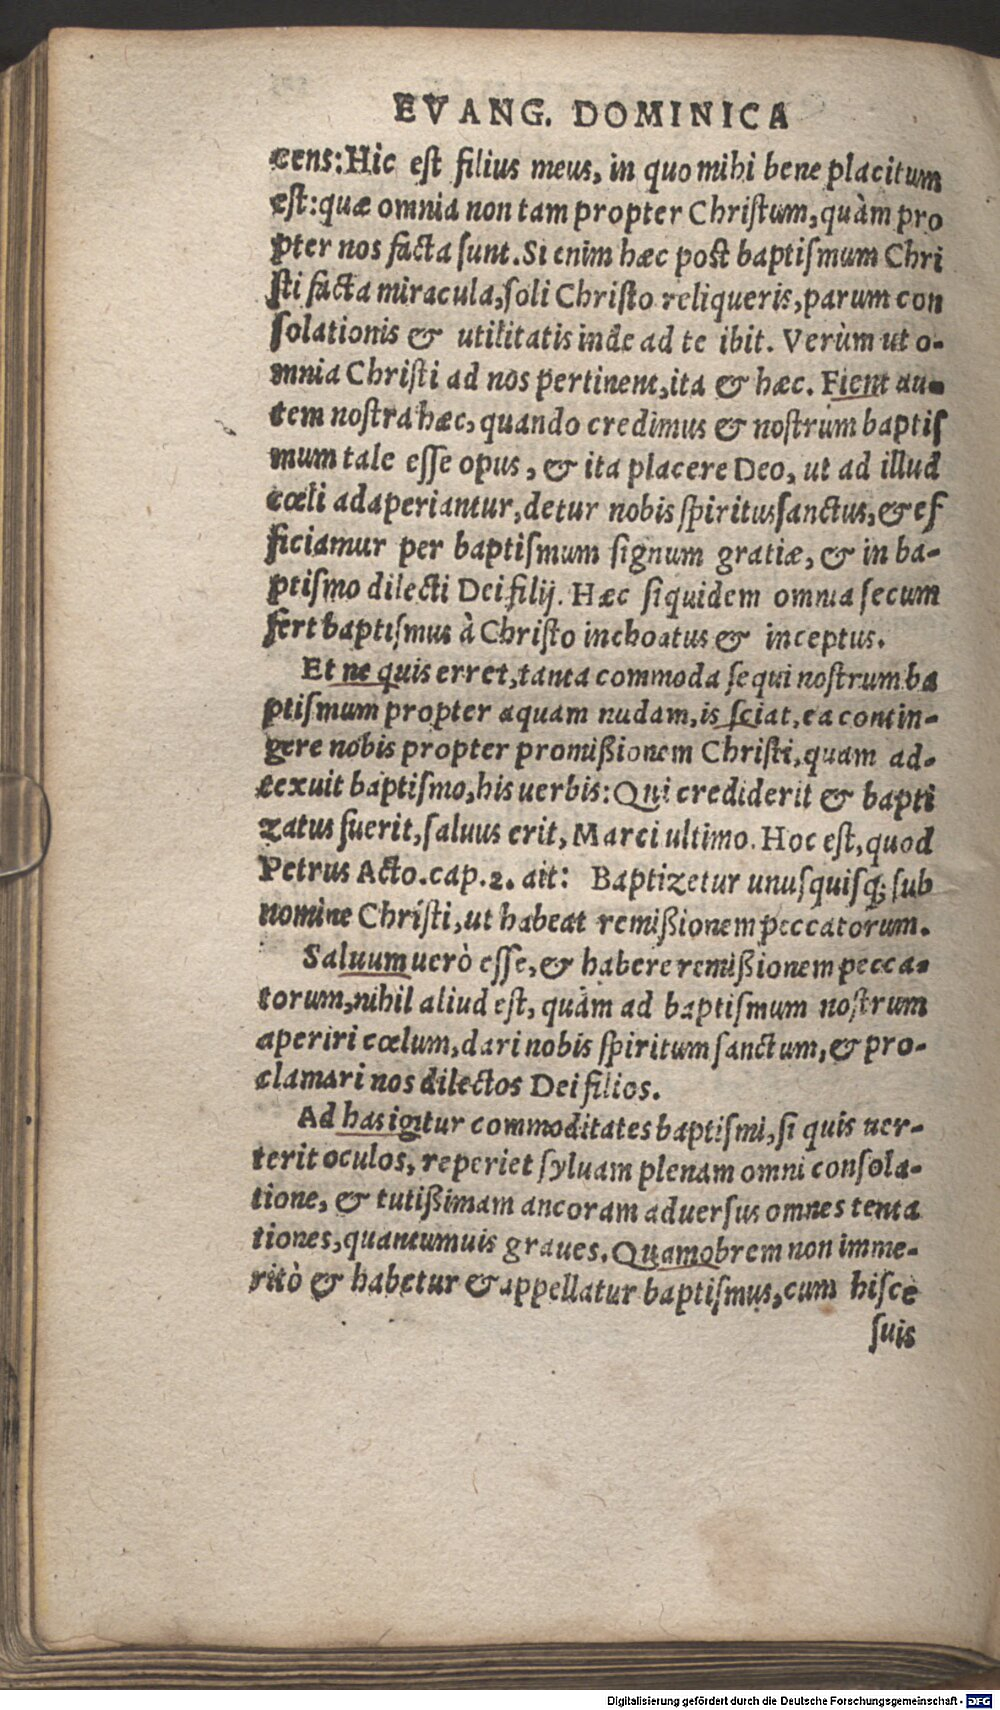 EVANG. DOMINICA
cens: Hic est filius meus, in quo mihi bene placitum
est: quæ omnia non tam propter Christum, quàm pro
pter nos facta sunt. Si enim hæc post baptiſmum Chri
ſti facta miracula, ſoli Chriſto reliqueris, parum con
ſolationis & utilitatis inde ad te ibit. Verùm ut o-
mnia Chriſti ad nos pertinent, ita & hæc. Fient au-
tem noſtra hæc, quando credimus & noſtrum baptiſ
mum tale eſſe opus, & ita placere Deo, ut ad illud
cœli adaperiantur, detur nobis ſpiritus ſanctus, & ef
ficiamur per baptiſmum ſignum gratiæ, & in ba-
ptiſmo dilecti Dei filij. Hæc ſiquidem omnia ſecum
fert baptiſmus à Chriſto inchoatus & inceptus.
Et ne quis erret, tanta commoda ſequi noſtrum ba
ptiſmum propter aquam nudam, is ſciat, ea contin-
gere nobis propter promißionem Chriſti, quam ad-
texuit baptiſmo, his uerbis: Qui crediderit & bapti
zatus fuerit, ſaluus erit, Marci ultimo. Hoc eſt, quod
Petrus Acto. cap. 2. ait: Baptizetur unuſquiſq; ſub
nomine Chriſti, ut habeat remißionem peccatorum.
Saluum uerò eſſe, & habere remißionem pecca-
torum, nihil aliud eſt, quàm ad baptiſmum noſtrum
aperiri cœlum, dari nobis ſpiritum ſanctum, & pro-
clamari nos dilectos Dei filios.
Ad has igitur commoditates baptiſmi, ſi quis uer-
terit oculos, reperiet ſyluam plenam omni conſola-
tione, & tutißimam ancoram aduerſus omnes tenta
tiones, quantumuis graues. Quamobrem non imme-
ritò & habetur & appellatur baptiſmus, cum hiſce
ſuis
Digitalisierung gefördert durch die Deutsche Forschungsgemeinschaft - DFG